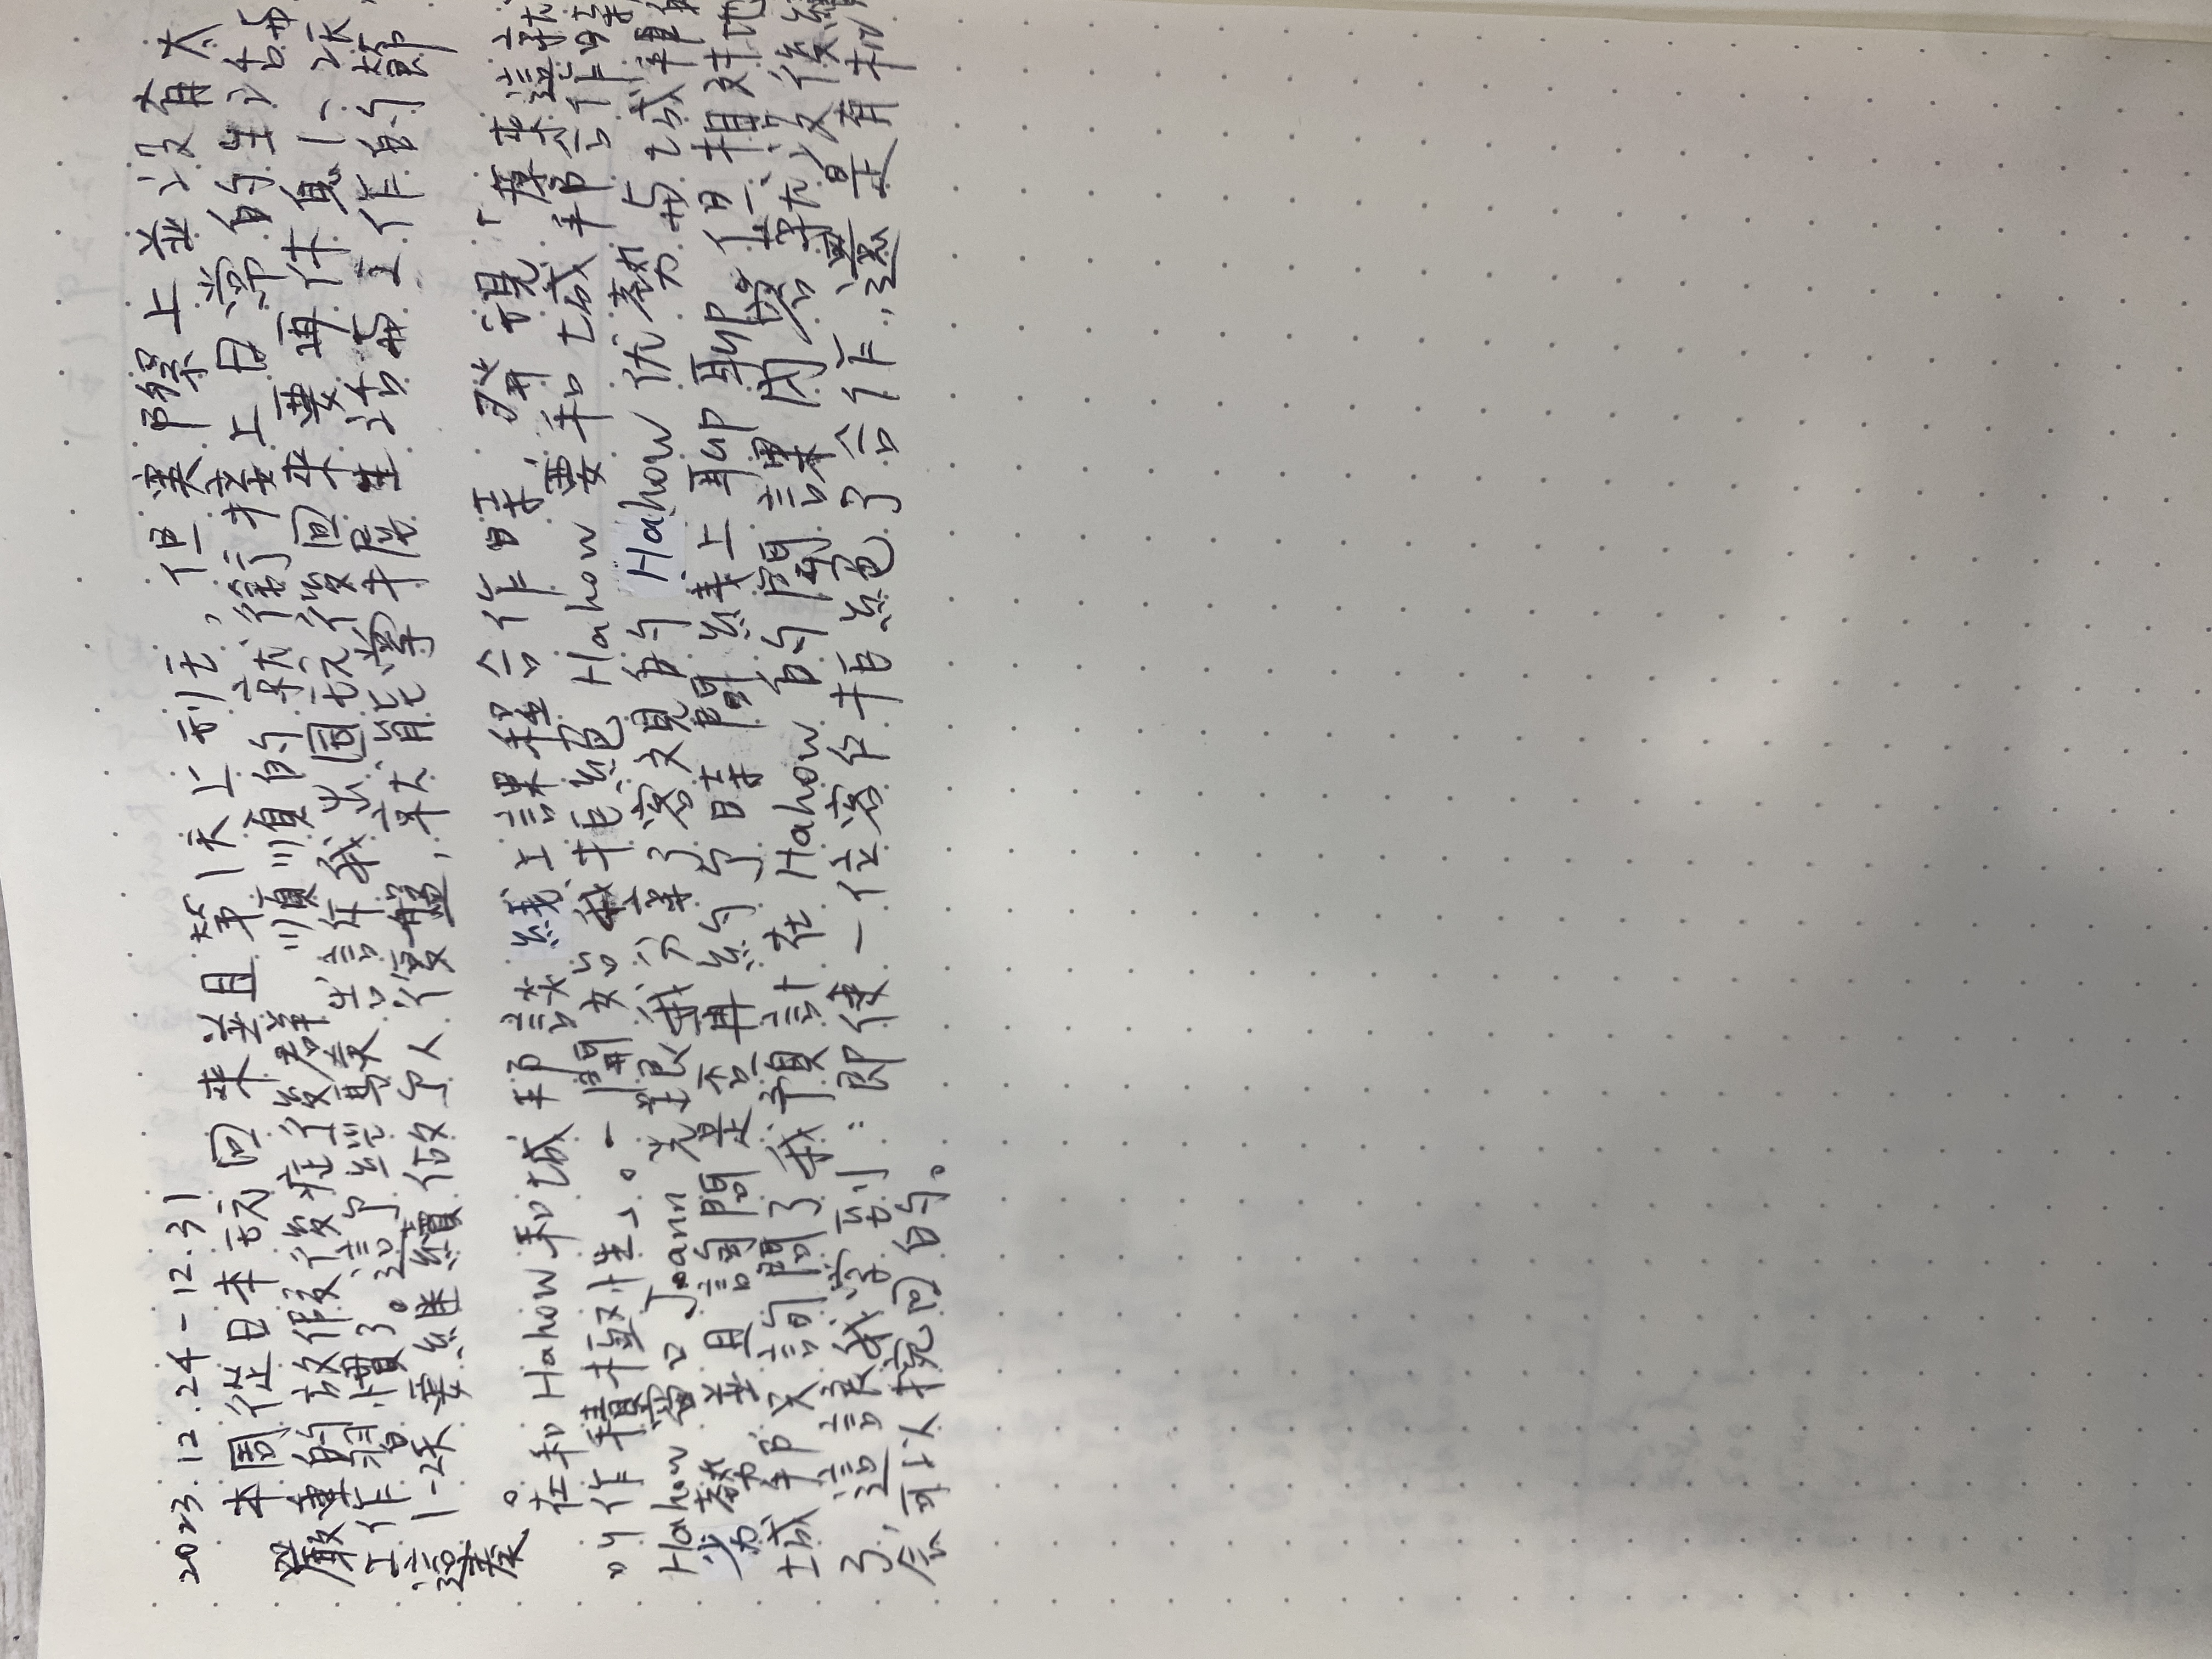 2023.12.24-12.31
本周從日本玩回來並且第1天上班, 但実際上並没有太
嚴重的放假後症後群, 順順的就銜接上日常的生活与
工作習慣了。這个經驗告訴我出国玩後回來要再休息1-2天
這1-2天要継續做个人復盤, 就能掌握生活与工作的節
奏。
在和Hahow和城邦談綫上課程合作時, 発現「原來這就
叫作積極性」。一開始我拒絕Hahow要和城邦合作時,
Hahow窗口Joann先跟我分享了客观的Hahow优勢与城邦的
劣勢, 並且詢問是否再約个時間綫上聊聊。但相対地
城邦只詢問了我預計在Hahow的開課内容就没後續
了, 這讓我学到: 即使一位客户拒絕了合作, 還是有机
会可以挽回的。